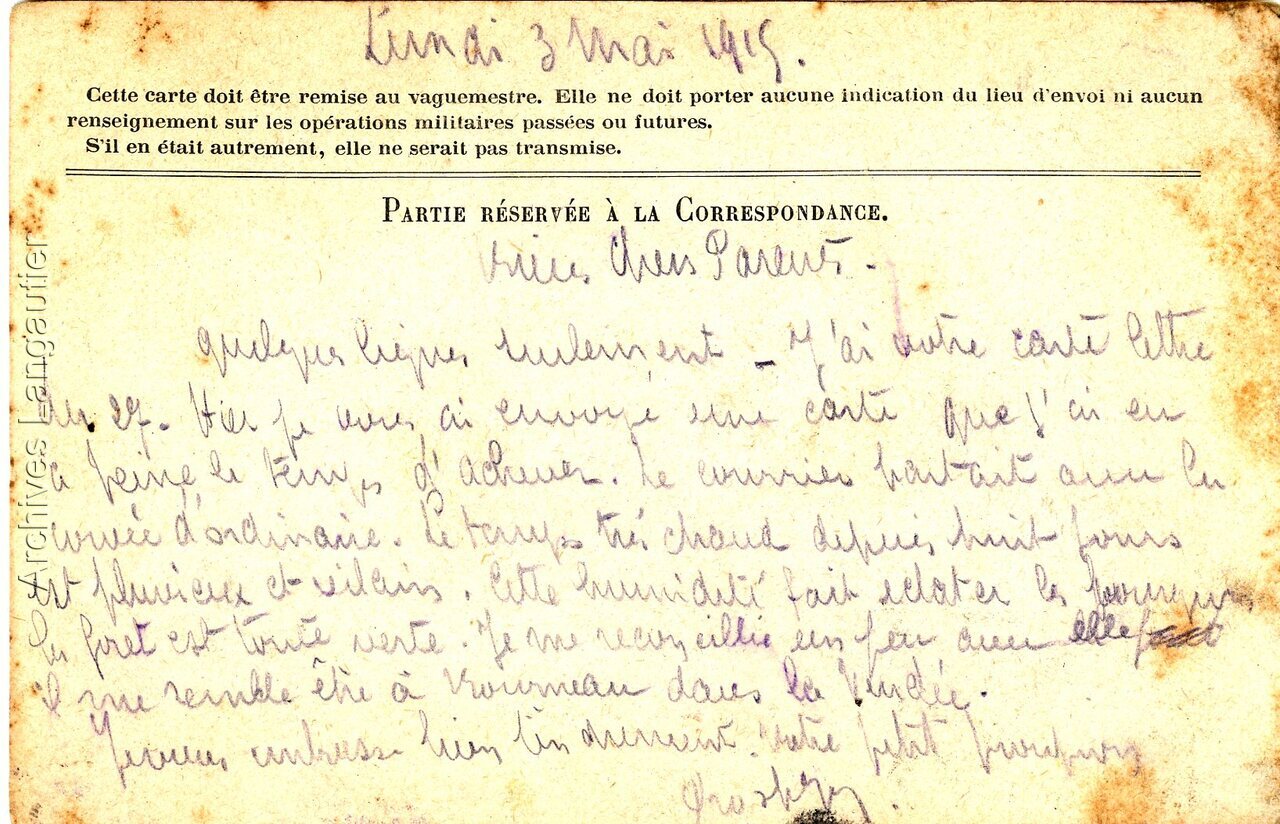 Lundi 3 Mai 1915.
Cette carte doit être remise au vaguemestre. Elle ne doit porter aucune indication du lieu d'envoi ni aucun
renseignement sur les opérations militaires passées ou futures.
S'il en était autrement, elle ne serait pas transmise.
PARTIE RÉSERVÉE À LA CORRESPONDANCE.
Chers Parents.
quelques lignes seulement _ J'ai votre carte lettre
du 27. Hier je vous ai envoyé une carte que j'ai eu
à peine le temps d'achever. Le courrier partait avec la
corvée d'ordinaire. Le temps très chaud depuis huit jours
est pluvieux et vilain. Cette humidité fait eclater les bourgeons
la foret est toute verte. Je me reconcilie un peu avec elle
il me semble être à dans la Vendée.
Je vous embrasse bien tendrement. Votre petit
© Archives Langautier